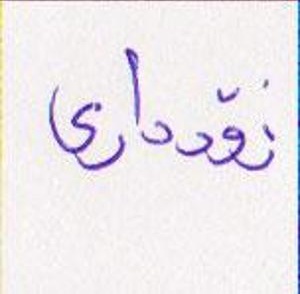 زۆرداری